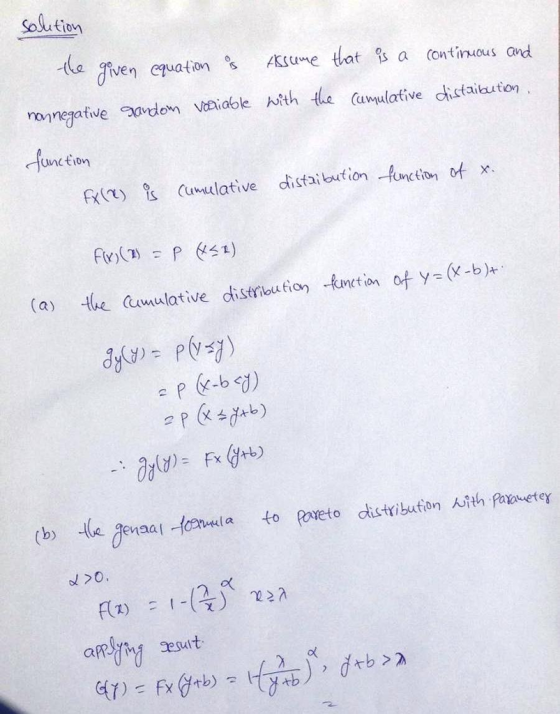 Solution
the given equation is Assume that is a continuous and
nonnegative random variable with the cumulative distribution.
function
Fx(x) is cumulative distribution function of x.
F(x)(x) = P (x≤x)
(a) the cumulative distribution function of Y=(X-b)+.
gy(y) = P(Y≤y)
= P (X-b<y)
= P (X≤y+b)
∴ gy(y) = Fx (y+b)
(b) the genral formula to pareto distribution with parameter
α>0.
F(x) = 1-(λ/x)^α x≥λ
applying result
G(y) = Fx (y+b) = 1-(λ/y+b)^α, y+b>λ
=